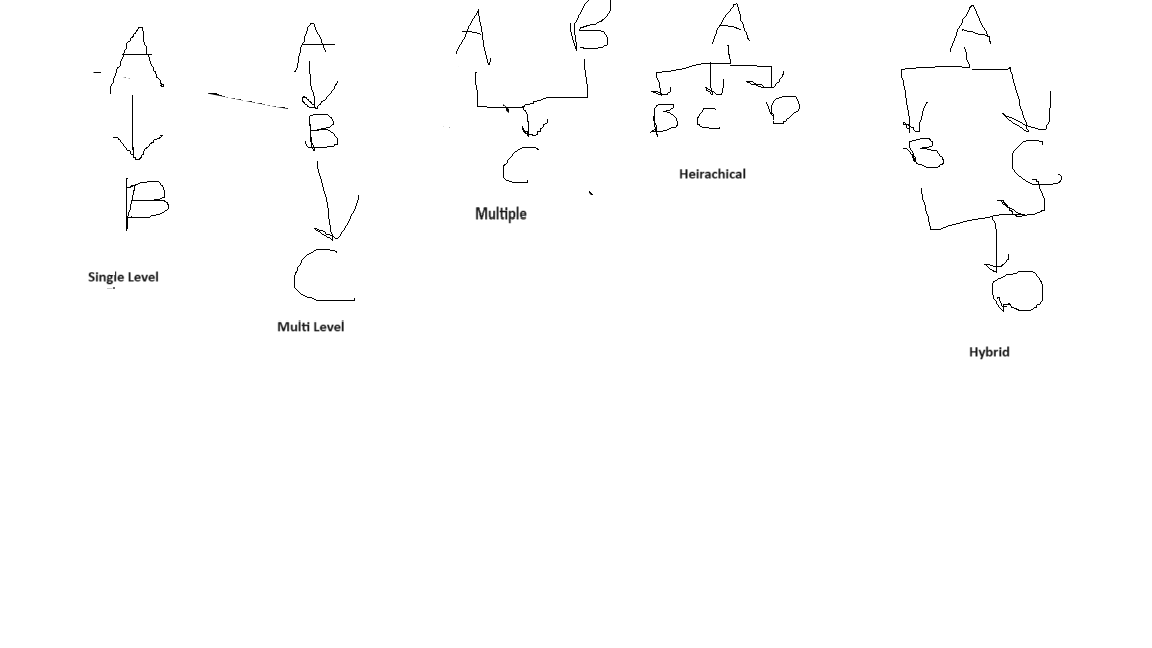 A
B
Single Level
A
B
C
Multi Level
A B
C
Multiple
A
B C D
Heirachical
A
B C
D
Hybrid